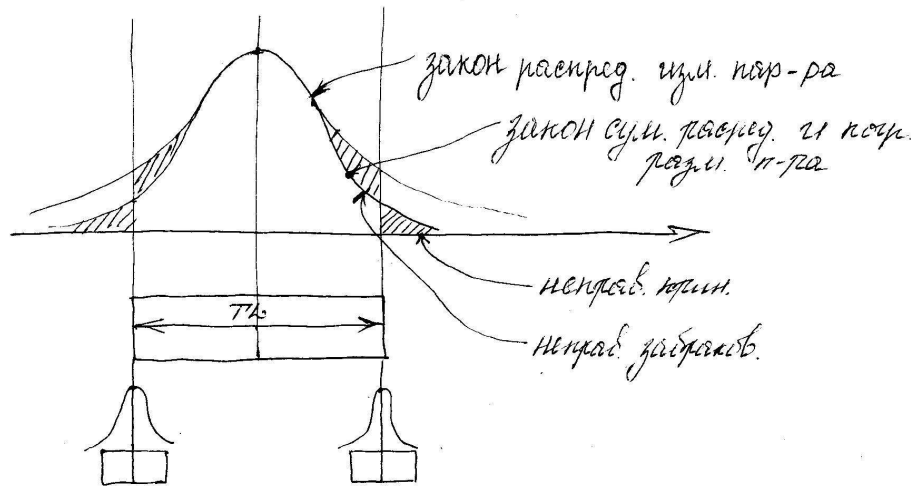 закон распред. изм. пар-ра
закон сум. распред. и погр.
разм. п-ра
неправ. прин.
неправ. забраков.
TL